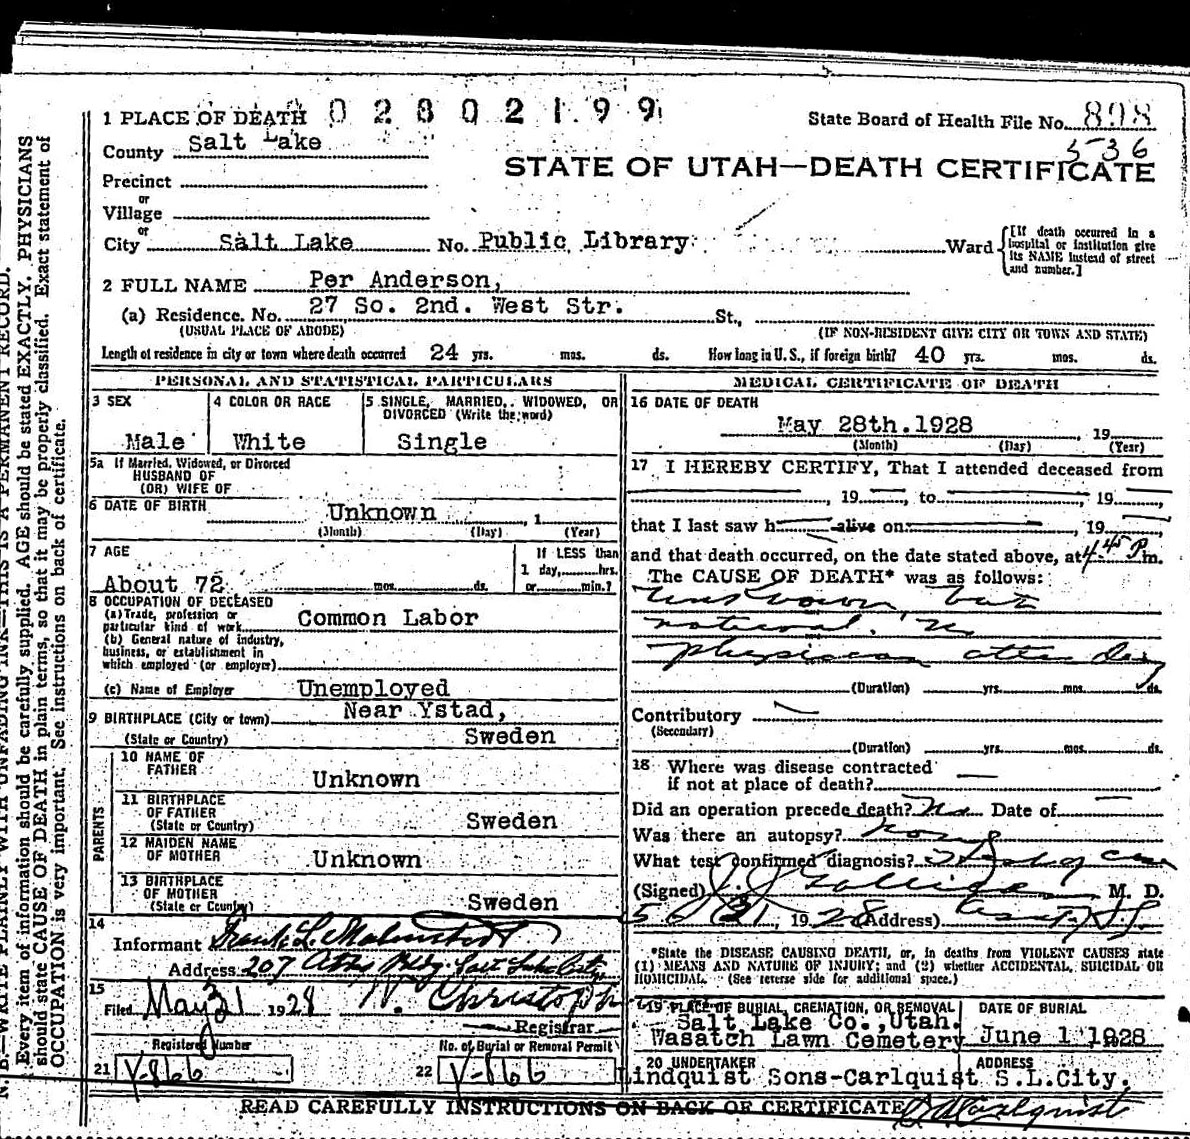 1 PLACE OF DEATH 0 2 8 0 2 1 9 9
State Board of Health File No. 898
536
County Salt Lake
STATE OF UTAH—DEATH CERTIFICATE
Precinct
or
Village
or
City Salt Lake No. Public Library Ward
[If death occurred in a hospital or institution give its NAME instead of street and number.]
2 FULL NAME Per Anderson,
(a) Residence. No. 27 So. 2nd. West Str. St.,
(USUAL PLACE OF ABODE) (IF NON-RESIDENT GIVE CITY OR TOWN AND STATE)
Length of residence in city or town where death occurred 24 yrs. mos. ds. How long in U.S., if foreign birth? 40 yrs. mos. ds.
PERSONAL AND STATISTICAL PARTICULARS
3 SEX 4 COLOR OR RACE 5 SINGLE, MARRIED, WIDOWED, OR
DIVORCED (Write the word)
Male White Single
5a If Married, Widowed, or Divorced
HUSBAND OF
(OR) WIFE OF
6 DATE OF BIRTH Unknown , 1
(Month) (Day) (Year)
7 AGE If LESS than
1 day, hrs.
About 72 mos. ds. or min.?
8 OCCUPATION OF DECEASED
(a) Trade, profession or
particular kind of work Common Labor
(b) General nature of industry,
business, or establishment in
which employed (or employer)
(c) Name of Employer Unemployed
9 BIRTHPLACE (City or town) Near Ystad,
(State or Country) Sweden
PARENTS
10 NAME OF
FATHER Unknown
11 BIRTHPLACE
OF FATHER
(State or Country) Sweden
12 MAIDEN NAME
OF MOTHER Unknown
13 BIRTHPLACE
OF MOTHER
(State or Country) Sweden
14
Informant Frank L. Malmstedt
Address 207 Bldg. Salt Lake City
15
Filed May 31 1928 W. Christoph
Registrar
Registered Number No. of Burial or Removal Permit
21 V-866 22 V-866
MEDICAL CERTIFICATE OF DEATH
16 DATE OF DEATH
May 28th.1928 , 19
(Month) (Day) (Year)
17 I HEREBY CERTIFY, That I attended deceased from
, 19 , to , 19 ,
that I last saw h alive on , 19
and that death occurred, on the date stated above, at 4.45 P m.
The CAUSE OF DEATH* was as follows:
Unknown, but
natural. No
physician attending
(Duration) yrs. mos. ds.
Contributory
(Secondary)
(Duration) yrs. mos. ds.
18 Where was disease contracted
if not at place of death?
Did an operation precede death? No Date of
Was there an autopsy?
What test confirmed diagnosis?
(Signed) M. D.
5/31, 1928 (Address)
*State the DISEASE CAUSING DEATH, or, in deaths from VIOLENT CAUSES state
(1) MEANS AND NATURE OF INJURY; and (2) whether ACCIDENTAL, SUICIDAL OR
HOMICIDAL. (See reverse side for additional space.)
19 PLACE OF BURIAL, CREMATION, OR REMOVAL DATE OF BURIAL
Salt Lake Co.,Utah.
Wasatch Lawn Cemetery June 1 1928
20 UNDERTAKER ADDRESS
Lindquist Sons-Carlquist S.L.City.
READ CAREFULLY INSTRUCTIONS ON BACK OF CERTIFICATE Carlquist
N. B.—WRITE PLAINLY WITH UNFADING INK—THIS IS A PERMANENT RECORD.
Every item of information should be carefully supplied. AGE should be stated EXACTLY. PHYSICIANS
should state CAUSE OF DEATH in plain terms, so that it may be properly classified. Exact statement of
OCCUPATION is very important. See instructions on back of certificate.